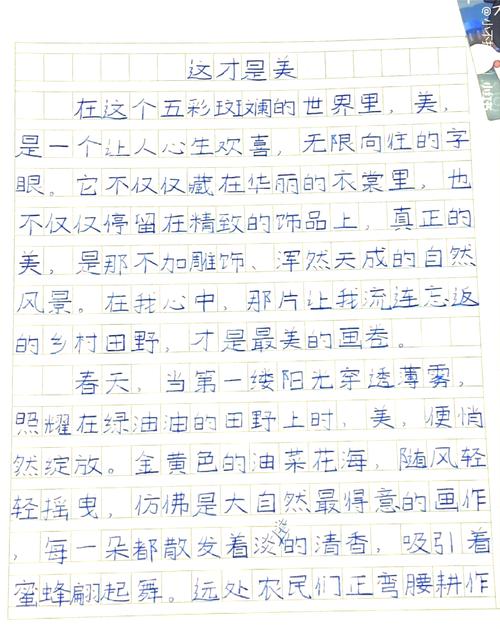 这才是美
在这个五彩斑斓的世界里，美，
是一个让人心生欢喜，无限向往的字
眼。它不仅仅藏在华丽的衣裳里，也
不仅仅停留在精致的饰品上，真正的
美，是那不加雕饰、浑然天成的自然
风景。在我心中，那片让我流连忘返
的乡村田野，才是最美的画卷。
春天，当第一缕阳光穿透薄雾，
照耀在绿油油的田野上时，美，便悄
然绽放。金黄色的油菜花海，随风轻
轻摇曳，仿佛是大自然最得意的画作
，每一朵都散发着淡淡的清香，吸引着
蜜蜂翩起舞。远处农民们正弯腰耕作